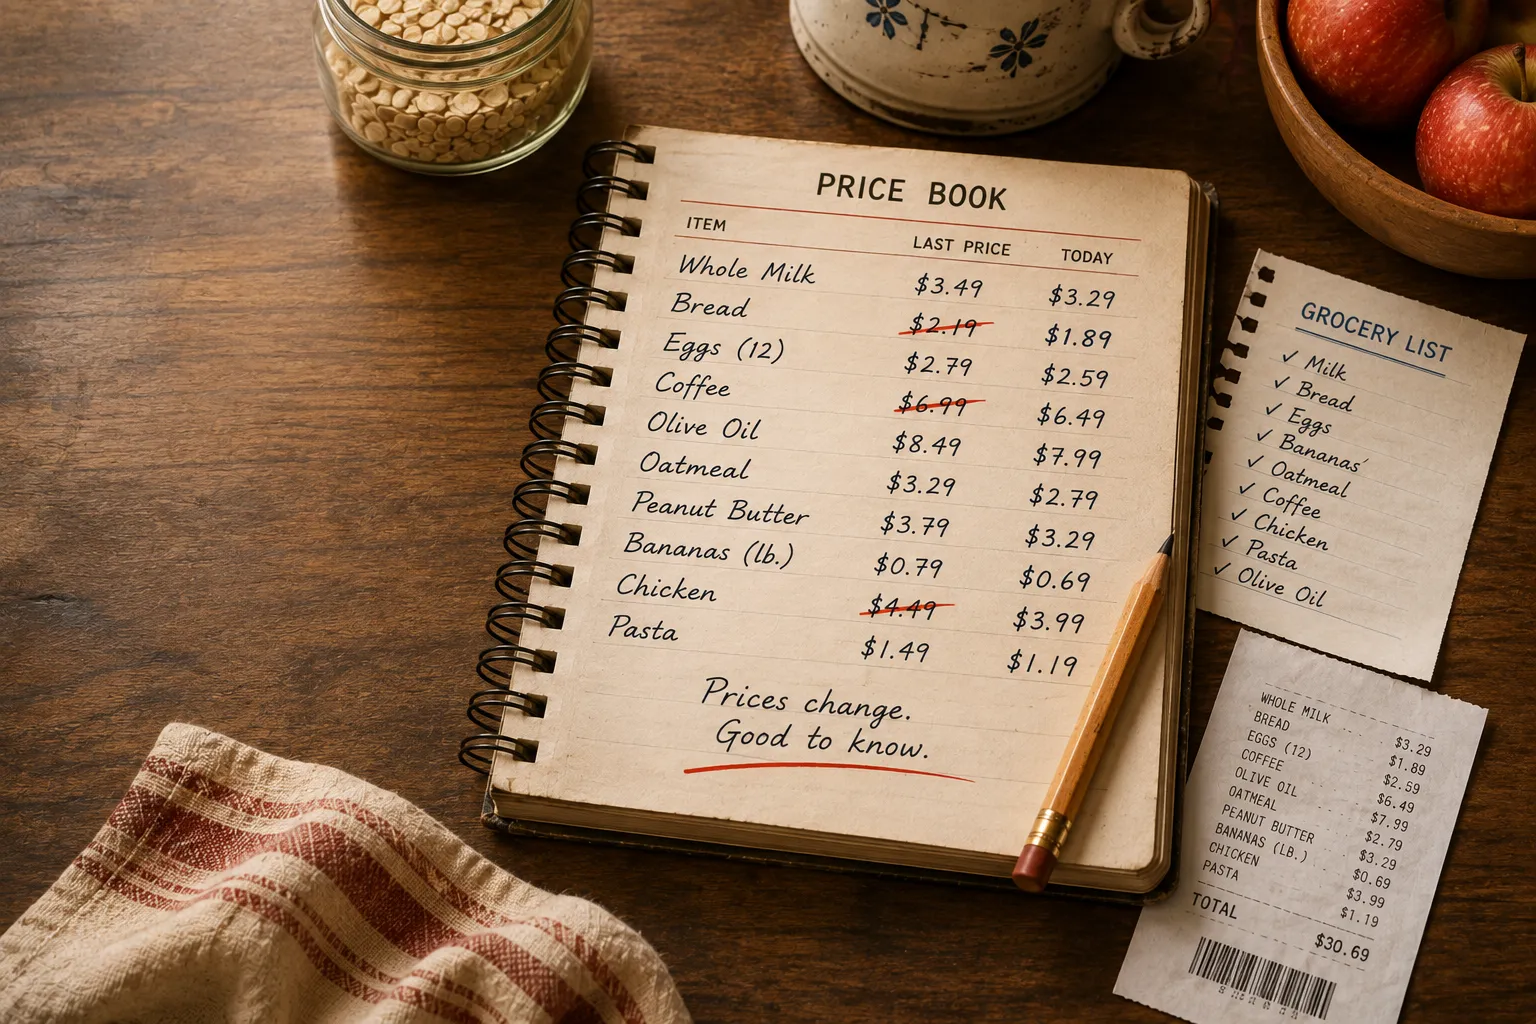 PRICE BOOK
ITEM LAST PRICE TODAY
Whole Milk $3.49 $3.29
Bread $2.19 $1.89
Eggs (12) $2.79 $2.59
Coffee $6.99 $6.49
Olive Oil $8.49 $7.99
Oatmeal $3.29 $2.79
Peanut Butter $3.79 $3.29
Bananas (lb.) $0.79 $0.69
Chicken $4.49 $3.99
Pasta $1.49 $1.19
Prices change.
Good to know.
GROCERY LIST
✓ Milk
✓ Bread
✓ Eggs
✓ Bananas
✓ Oatmeal
✓ Coffee
✓ Chicken
✓ Pasta
✓ Olive Oil
WHOLE MILK $3.29
BREAD $1.89
EGGS (12) $2.59
COFFEE $6.49
OLIVE OIL $7.99
OATMEAL $2.79
PEANUT BUTTER $3.29
BANANAS (LB.) $0.69
CHICKEN $3.99
PASTA $1.19
TOTAL $30.69